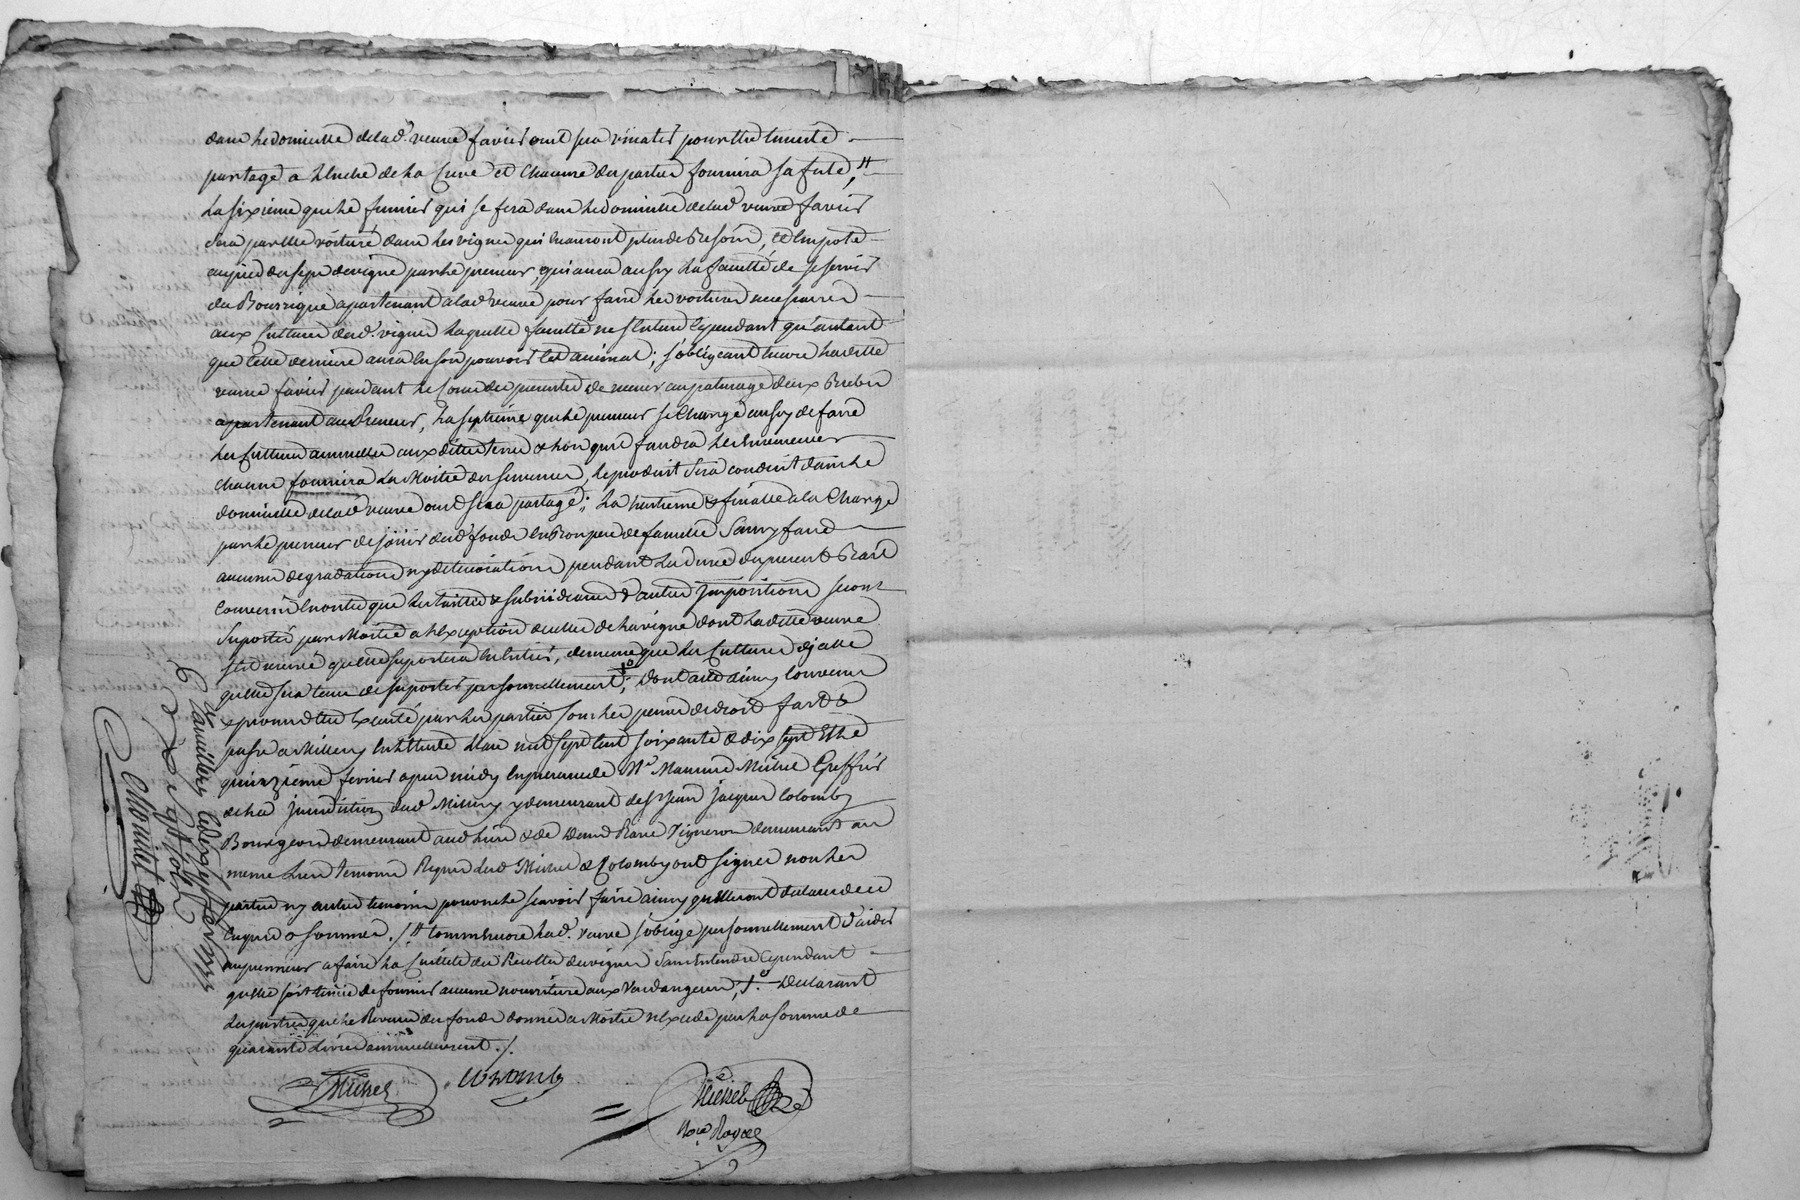 dans le domicille de lad. veuve favier ou il sera vinater pour ettre ensuite
partagé a l'anche de la Cuve et chacune des parties fournira sa futé, #
La sixieme que le fumier qui se fera dans le domicille de lad. veuve favier
sera par elle voituré dans les vignes qui en auront plus de Besoin, et emporté
au pied du sep de vigne par le preneur, qui aura aussy la faculté de se servir
du Bourrique apartenant a lad. veuve pour faire les voitures necessaires
aux Cultures desd. vignes laquelle faculté ne s'entend cependant qu'autant
que cette derniere aura en son pouvoir cet animal; s'obligeant encore laditte
veuve favier pendant le Cours des presentes de mener au paturage deux Brebis
apartenant au Preneur, La septieme que le preneur se Charge aussy de faire
les Cultures annuelles aux dittes terres & lors qu'il faudra les ensemencer
chacun fournira la Moitié des semences, le produit sera conduit dans le
domicille de lad. veuve ou il sera partagé; La huitieme & finalle a la Charge
par le preneur de jouir desd. fonds en Bon pere de famille sans y faire
aucunes degradations ny deteriorations pendant la durée du present Bail
Convenu en outre que les tailles & subsides & d'autres impositions seront
suportés par Moitié a l'exception de celles de la vigne dont laditte veuve
s'est reservé quelle suportera en entier, de meme que les Cultures d'jcelle
quelle sera tenue de suporter personnellement; dont acte ainsy convenu
& promis ettre executé par les parties sous les peines de droit fait &
passé a Millery en l'Etude L'an mil sept cent soixante & dix sept & le
quinzieme fevrier apres midy en presence de Me. Maurice Michel Greffier
de la jurisdiction dud. Millery y demeurant de Sr. Jean Jacques Colomby
Bourgeois demeurant aud. lieu & de Vigneron demeurant au
meme lieu temoins Requis led. Michel & Colomby ont signés non les
parties ny autre temoin pour ne le scavoir faire ainsy qu'ils l'ont declaré de ce
Enquis & sommés. /# comme encore lad. veuve s'oblige personnellement d'aider
au preneur a faire la Cuillete des Recoltes des vignes sans entendre cependant
quelle soit tenüe de fournir aucune nourriture aux Vendangeurs, /. Declarant
les parties que le Revenu des fonds donnés a Moitié n'excede pas la somme de
quarante Livres annuellement ./.
Michel Colomby
Michel
No.re Royal